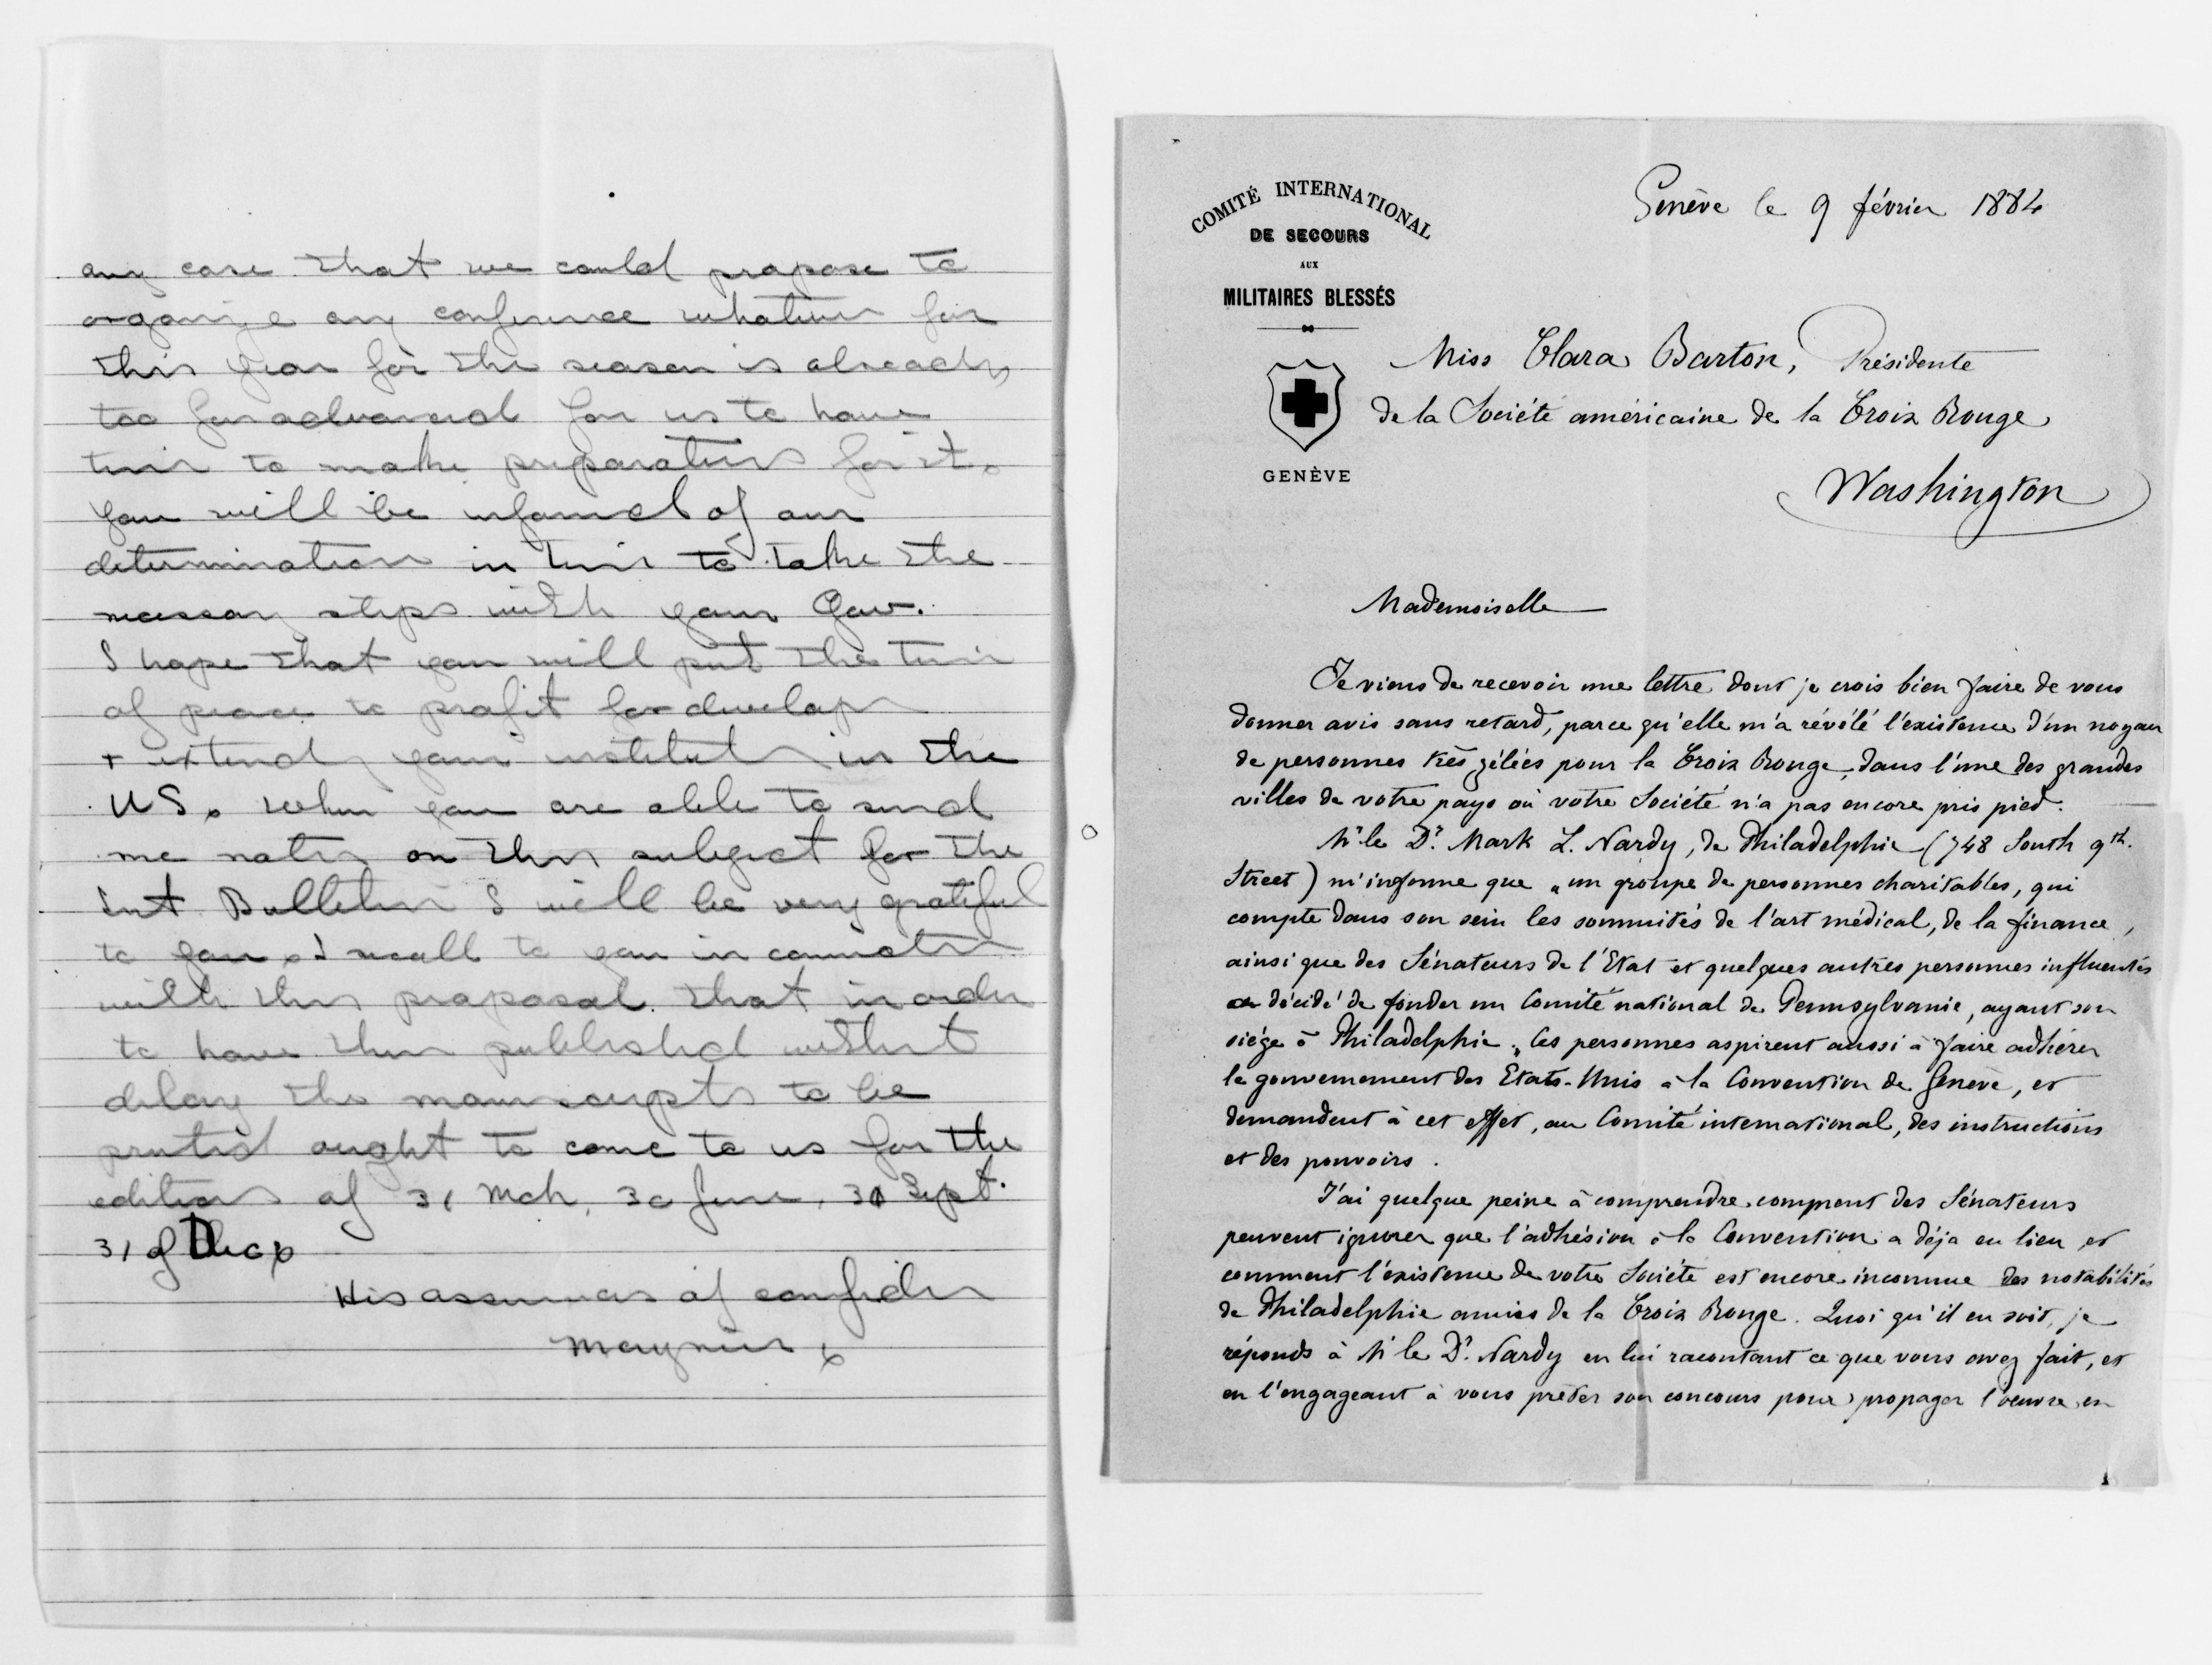 any case that we could propose to
organize any conference whatever for
this year for the season is already
too far advanced for us to have
time to make preparations for it.
You will be informed of our
determination in time to take the
necessary steps with your Gov.
I hope that you will put the time
of peace to profit for develop
+ extend your institut in the
US. When you are able to send
me notes on this subject for the
Int Bulletin I will be very grateful
to you. I recall to you in connection
with this proposal that in order
to have them published without
delay the manuscripts to be
printed ought to come to us for the
editions of 31 Mch, 30 June, 30 Sept.
31 of Dec
His assurances of
Moynier
COMITÉ INTERNATIONAL
DE SECOURS
AUX
MILITAIRES BLESSÉS
GENÈVE
Genève le 9 février 1884
Miss Clara Barton, Présidente
de la Société américaine de la Croix Rouge
Washington
Mademoiselle
Je viens de recevoir une lettre dont je crois bien faire de vous
donner avis sans retard, parce qu'elle m'a révélé l'existence d'un noyau
de personnes très zélées pour la Croix Rouge, dans l'une des grandes
villes de votre pays où votre Société n'a pas encore pris pied.
Mr le Dr. Mark L. Nardy, de Philadelphie (748 South 9th.
Street) m'informe que „un groupe de personnes charitables, qui
compte dans son sein les sommités de l'art médical, de la finance,
ainsi que des Sénateurs de l'Etat et quelques autres personnes influentes
a décidé de fonder un Comité national de Pennsylvanie, ayant son
siège à Philadelphie„. Ces personnes aspirent aussi à faire adhérer
le gouvernement des Etats-Unis à la Convention de Genève, et
demandent à cet effet, au Comité international, des instructions
et des pouvoirs.
J'ai quelque peine à comprendre comment des Sénateurs
peuvent ignorer que l'adhésion à la Convention a déja eu lieu et
comment l'existence de votre Société est encore inconnue des notabilités
de Philadelphie amies de la Croix Rouge. Quoi qu'il en soit, je
réponds à M le Dr. Nardy en lui racontant ce que vous avez fait, et
en l'engageant à vous prêter son concours pour propager l'oeuvre en